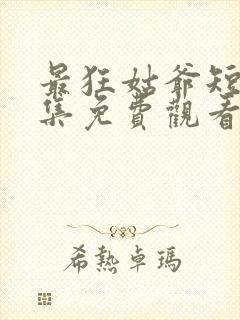 最狂姑爺短
集免費觀看
希熱卓瑪